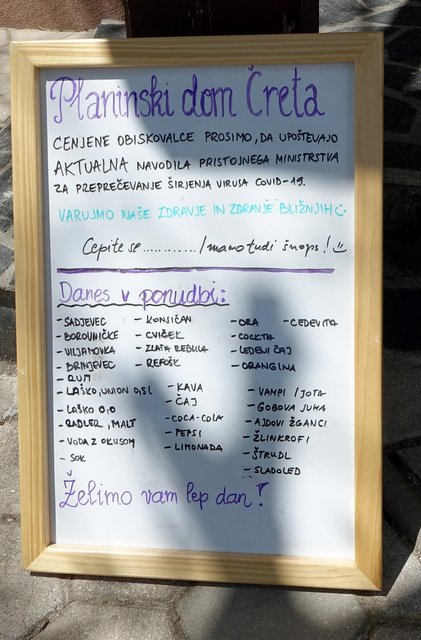 Planinski dom Čreta
CENJENE OBISKOVALCE PROSIMO, DA UPOŠTEVAJO
AKTUALNA NAVODILA PRISTOJNEGA MINISTRSTVA
ZA PREPREČEVANJE ŠIRJENJA VIRUSA COVID-19.
VARUJMO NAŠE ZDRAVJE IN ZDRAVJE BLIŽNJIH
Cepite se............/mamo tudi šnops!
Danes v ponudbi:
- SADJEVEC
- BOROVNIČKE
- VILJAMOVKA
- BRINJEVEC
- RUM
- LAŠKO, UNION 0,5l
- LAŠKO 0,0
- RADLER, MALT
- VODA Z OKUSOM
- SOK
- KONJIČAN
- CVIČEK
- ZLATA REBULA
- REFOŠK
- KAVA
- ČAJ
- COCA-COLA
- PEPSI
- LIMONADA
- ORA
- COCKTA
- LEDENI ČAJ
- ORANGINA
- CEDEVITA
- VAMPI / JOTA
- GOBOVA JUHA
- AJDOVI ŽGANCI
- ŽLINKROFI
- ŠTRUDL
- SLADOLED
Želimo vam lep dan!